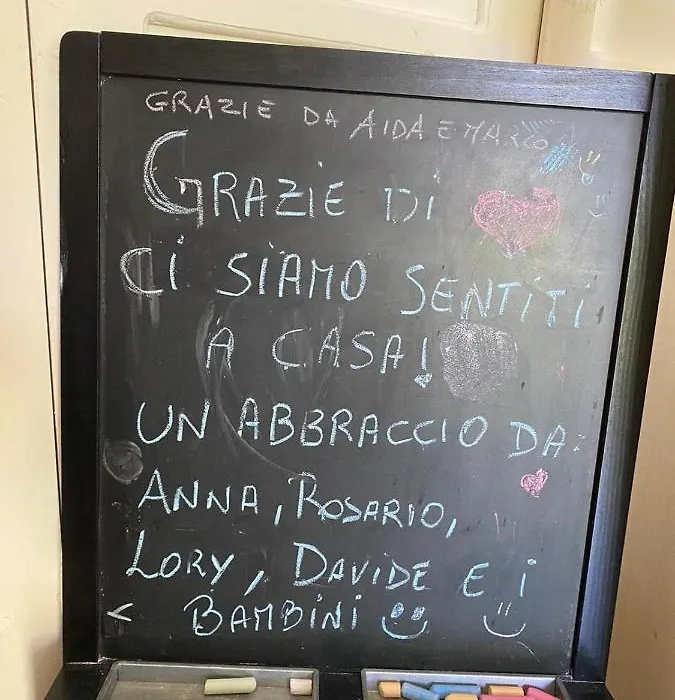 GRAZIE DA AIDA E MARCO
GRAZIE DI
CI SIAMO SENTITI
A CASA!
UN ABBRACCIO DA:
ANNA, ROSARIO,
LORY, DAVIDE E I
BAMBINI